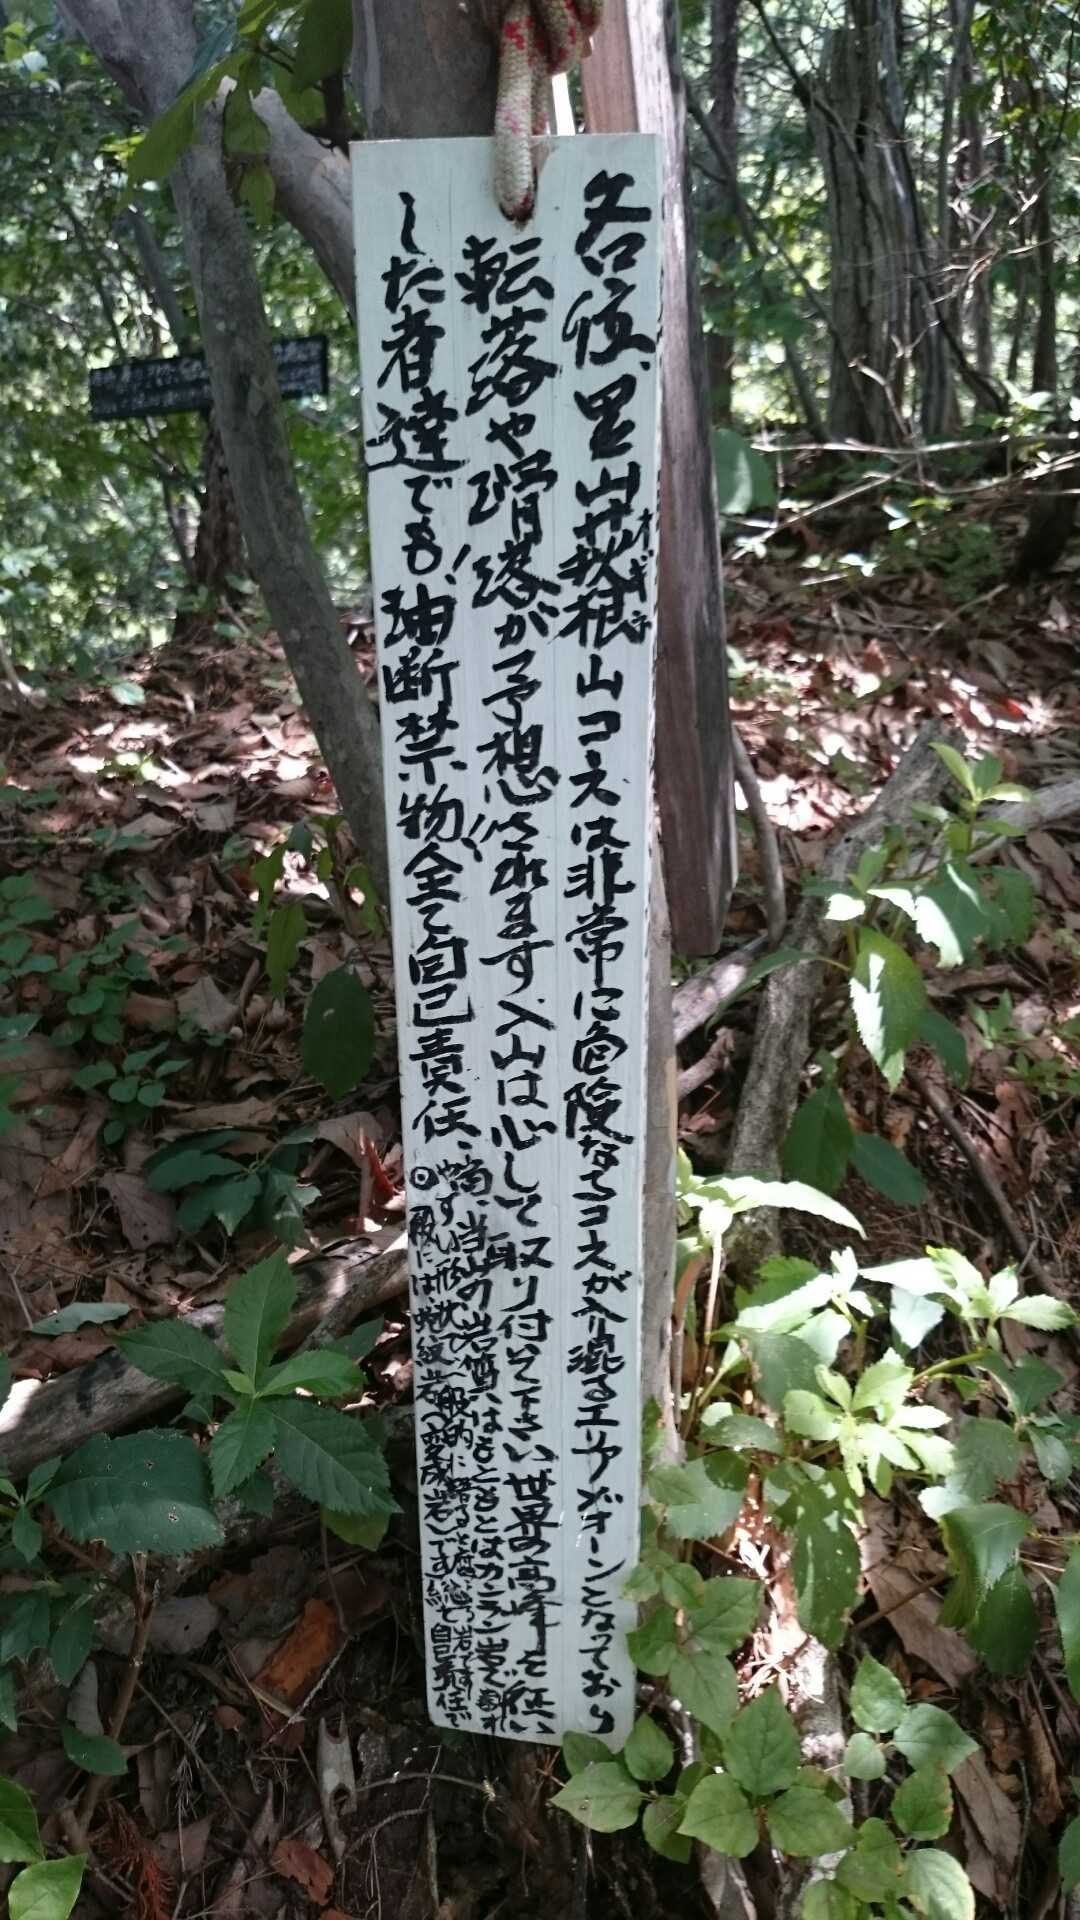 各位、里山萩根山コスは非常に危険なるコスが入り混るエリアゾーンとなっており
オギネ
転落や滑落が予想されます入山は心して取り付いて下さい世界の高峰を征い
した者達でも!油断禁物!!全て自己責任、
尚、当山の岩質はもともとはカンラン岩で割れ
やすい形状で一般的に
◎一般には蛇紋岩(変成岩)です
総て自己責任で